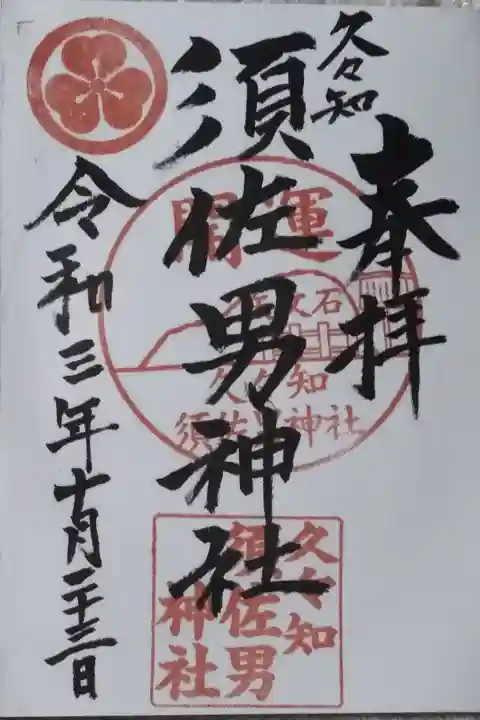 奉拝
久々知
須佐男神社
令和三年十月二十三日
開運
石
久々知
須佐男神社
久々知
須佐男
神社